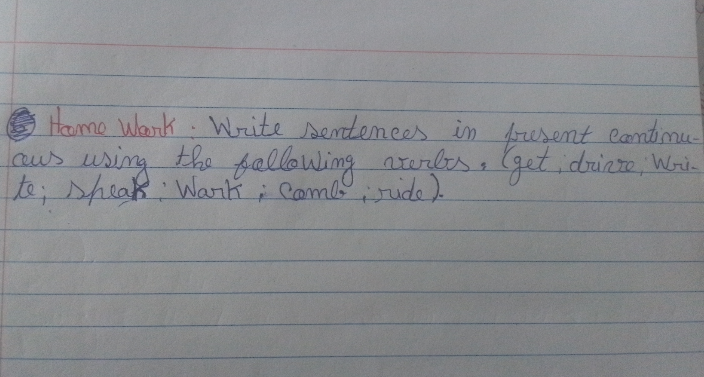 Home Work : Write sentences in present continu-
ous using the following verbs. (get ; drive ; Wri-
te ; speak ; Work ; come ; ride).